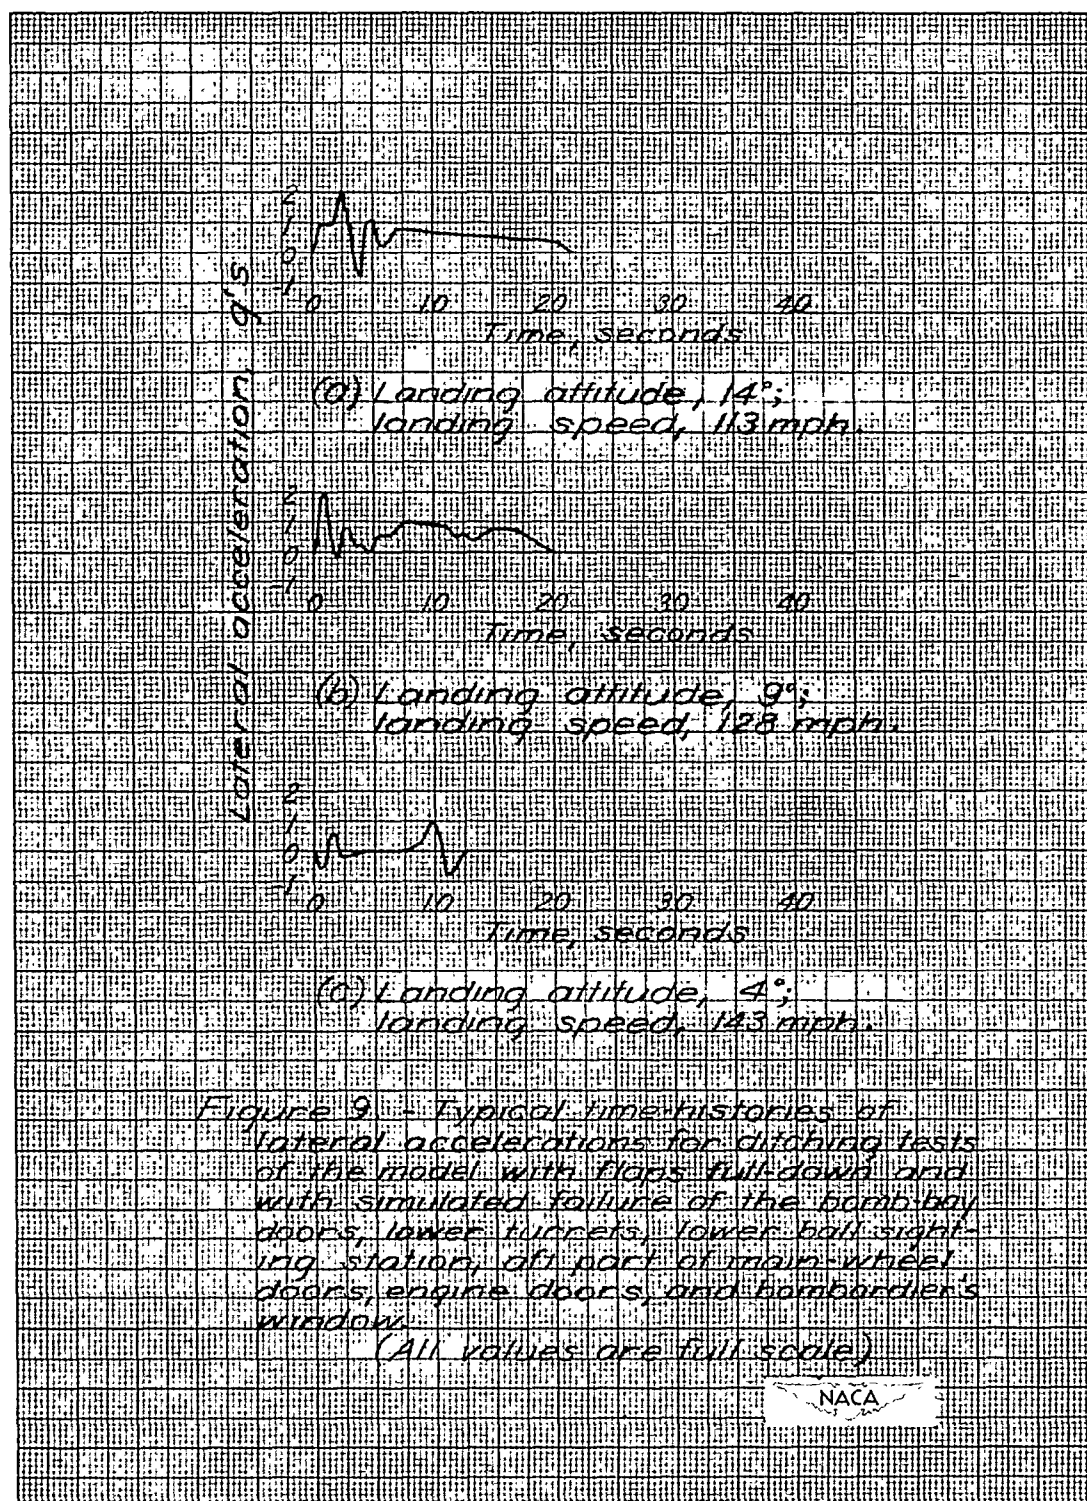 Lateral acceleration, g's
2
1
0
-1
0 10 20 30 40
Time, seconds
(a) Landing attitude, 14°;
landing speed, 113 mph.
2
1
0
-1
0 10 20 30 40
Time, seconds
(b) Landing attitude, 9°;
landing speed, 128 mph.
2
1
0
-1
0 10 20 30 40
Time, seconds
(c) Landing attitude, 4°;
landing speed, 143 mph.
Figure 9. - Typical time-histories of
lateral accelerations for ditching tests
of the model with flaps full-down and
with simulated failure of the bomb-bay
doors, lower turrets, lower ball sight-
ing station, aft part of main-wheel
doors, engine doors, and bombardier's
window.
(All values are full scale)
NACA